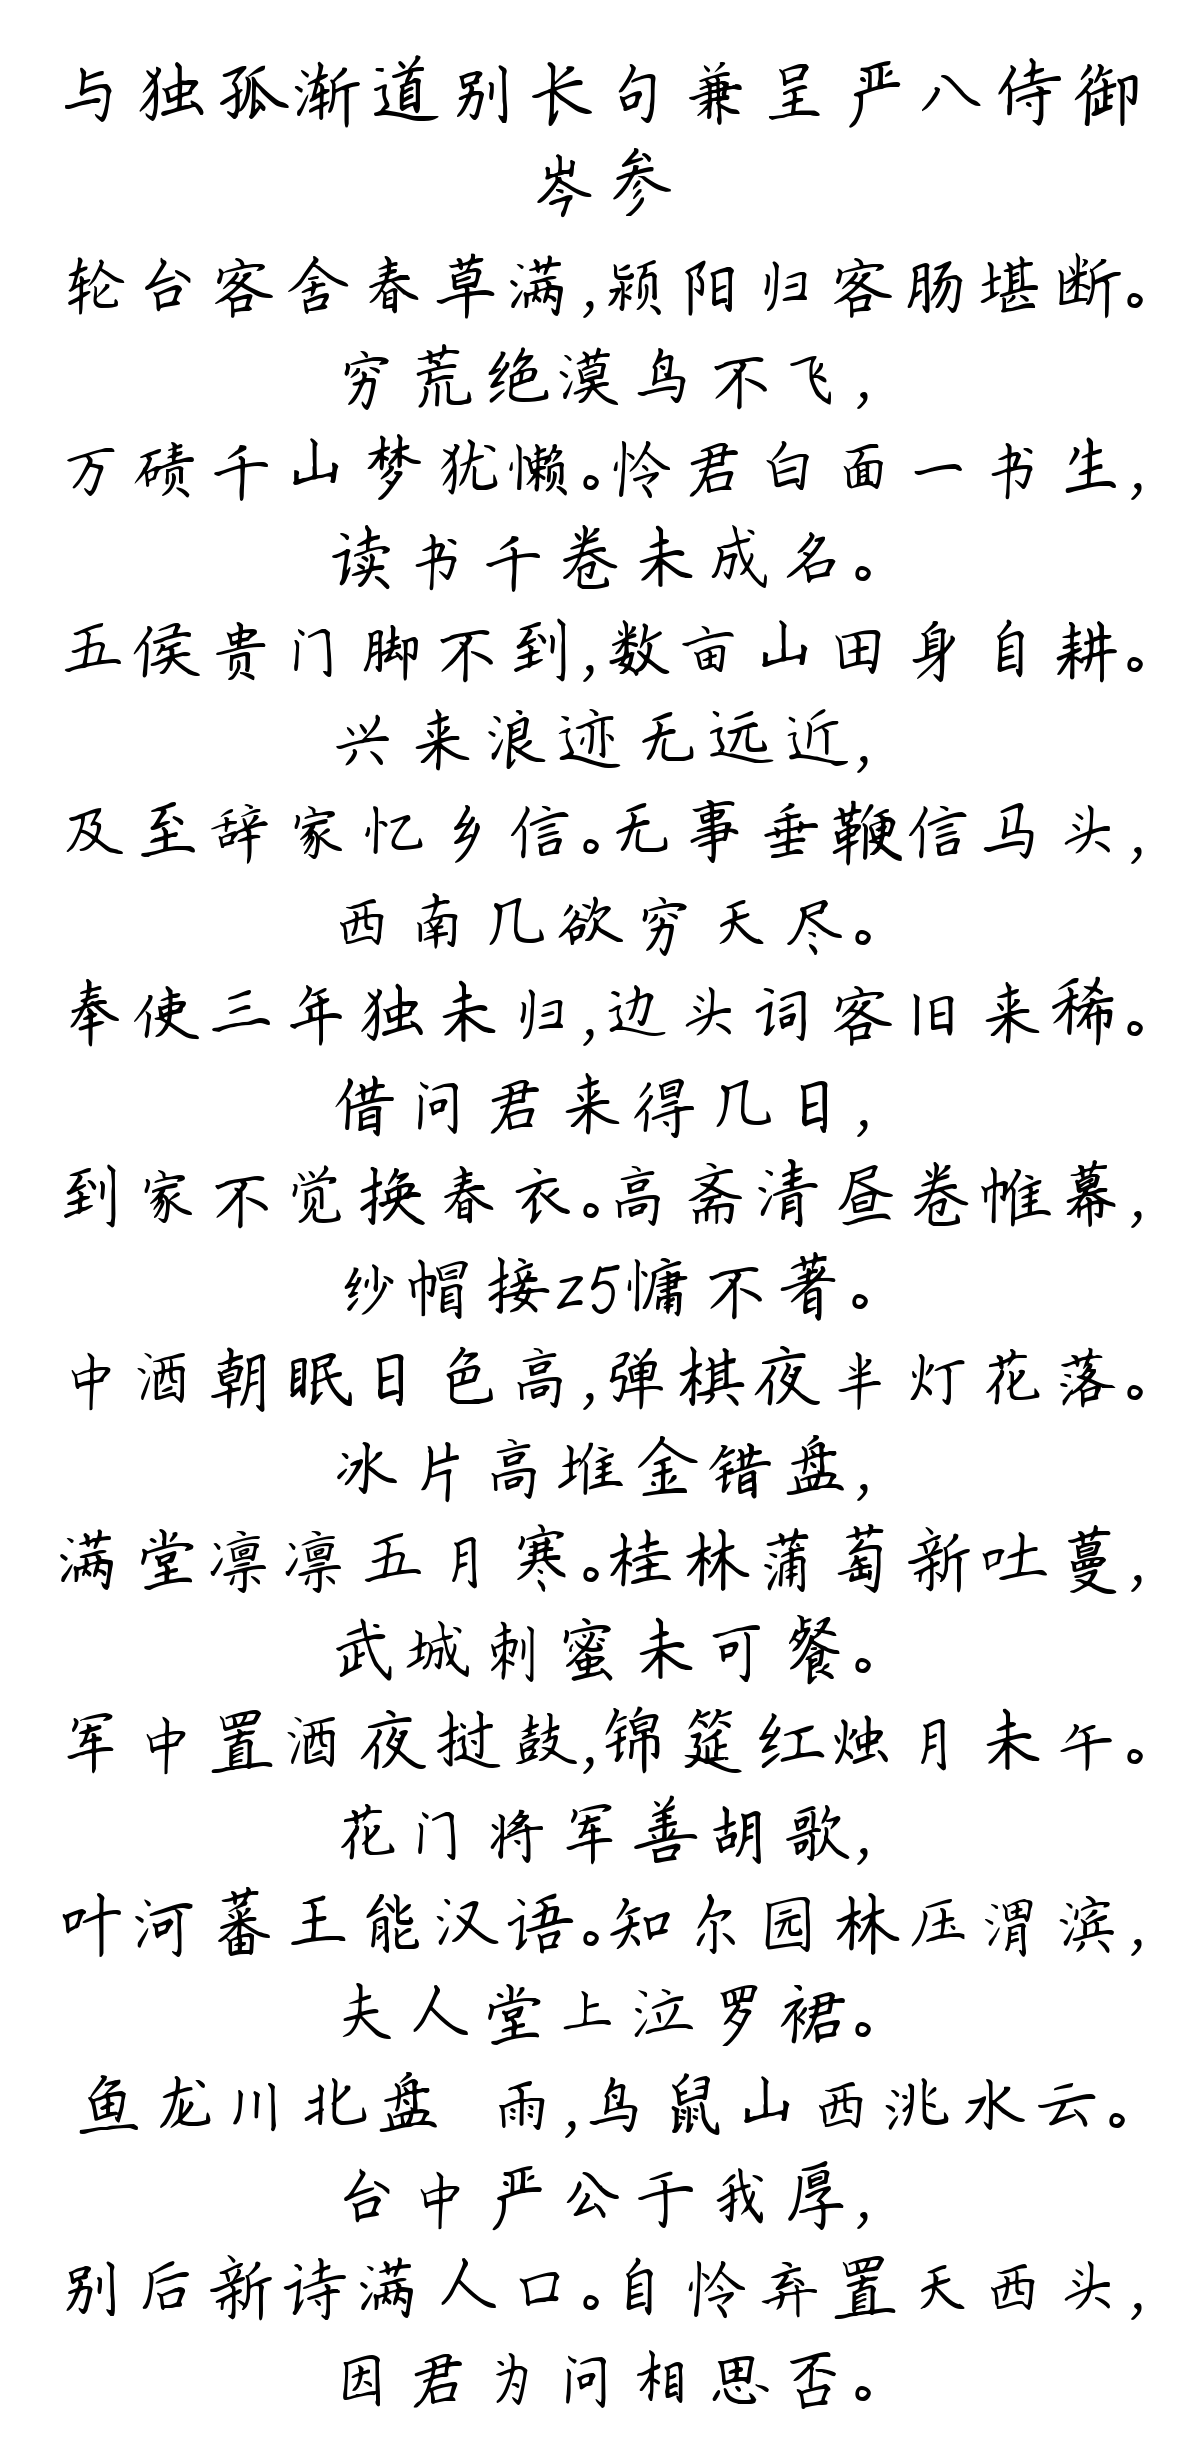 与独孤渐道别长句兼呈严八侍御
岑参
轮台客舍春草满,颍阳归客肠堪断。
穷荒绝漠鸟不飞,
万碛千山梦犹懒。怜君白面一书生,
读书千卷未成名。
五侯贵门脚不到,数亩山田身自耕。
兴来浪迹无远近,
及至辞家忆乡信。无事垂鞭信马头,
西南几欲穷天尽。
奉使三年独未归,边头词客旧来稀。
借问君来得几日,
到家不觉换春衣。高斋清昼卷帷幕,
纱帽接z5慵不著。
中酒朝眠日色高,弹棋夜半灯花落。
冰片高堆金错盘,
满堂凛凛五月寒。桂林蒲萄新吐蔓,
武城刺蜜未可餐。
军中置酒夜挝鼓,锦筵红烛月未午。
花门将军善胡歌,
叶河蕃王能汉语。知尔园林压渭滨,
夫人堂上泣罗裙。
鱼龙川北盘 雨,鸟鼠山西洮水云。
台中严公于我厚,
别后新诗满人口。自怜弃置天西头,
因君为问相思否。